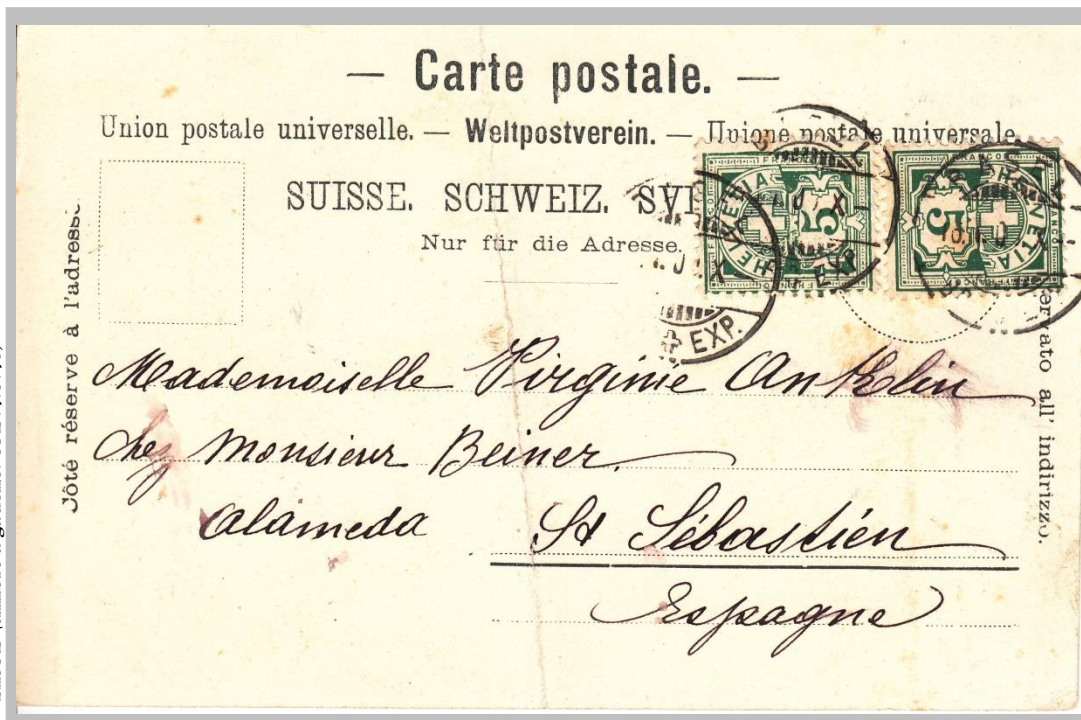 — Carte postale. —
Union postale universelle. — Weltpostverein. — Unione postale universale.
SUISSE. SCHWEIZ.
Nur für die Adresse.
Côté réservé à l'adresse.
all' indirizzo.
HELVETIA
FRANCO
5
HELVETIA
FRANCO
5
EXP.
EXP.
Mademoiselle Virginie Anklin
chez Monsieur Beiner.
Alameda St Sébastién
Espagne